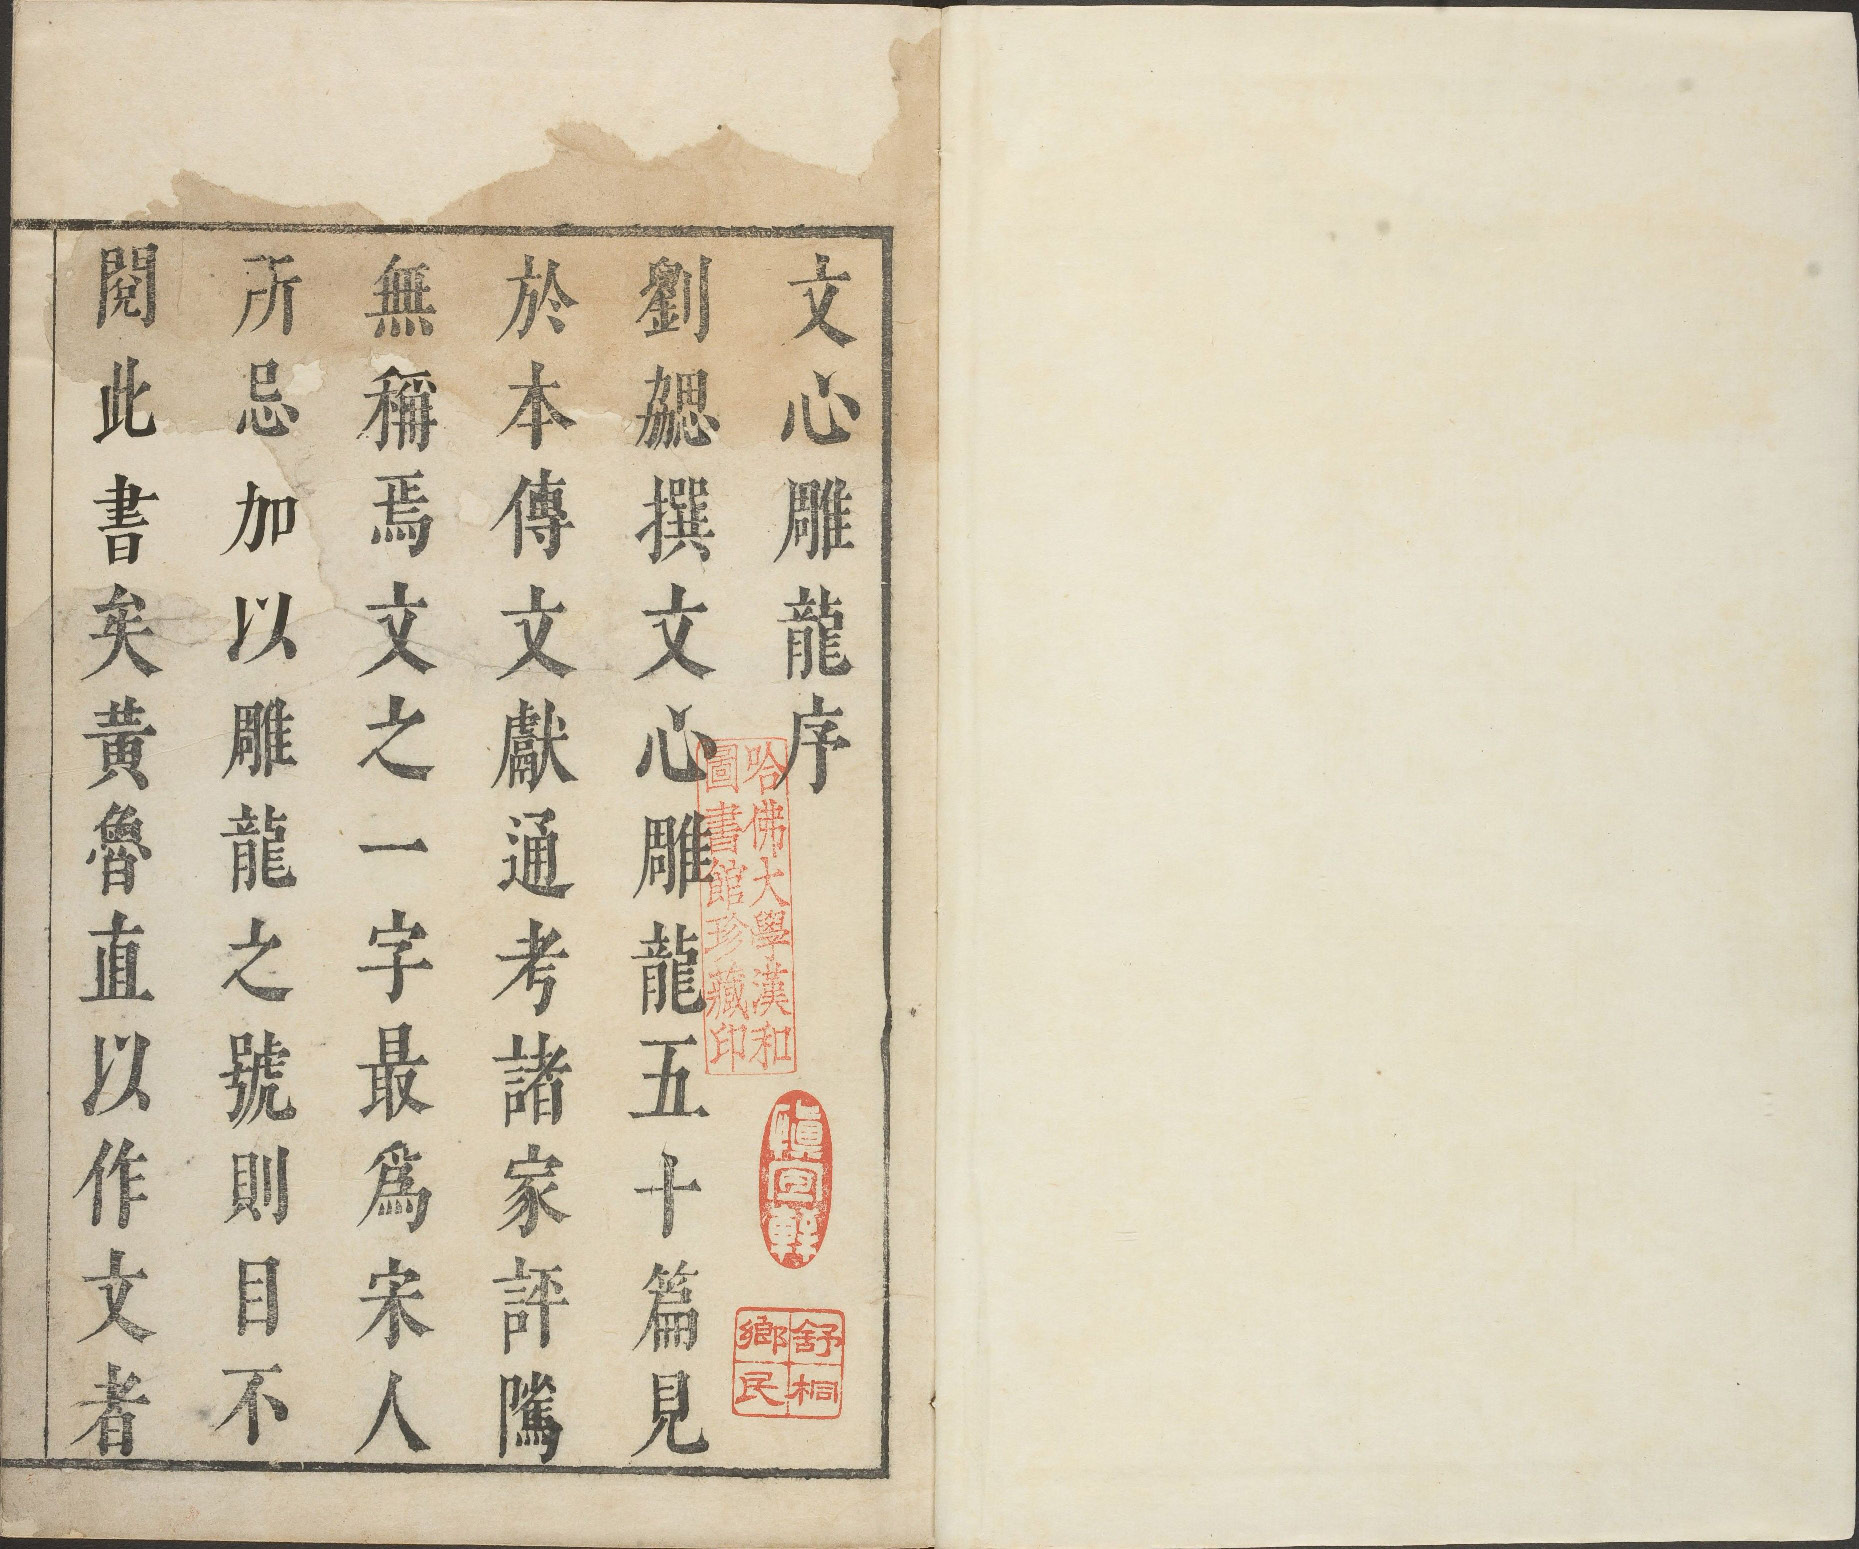 文心雕龍序
劉勰撰文心雕龍五十篇見
於本傳文獻通考諸家評騭
無稱焉文之一字最爲宋人
所忌加以雕龍之號則目不
閱此書矣黃魯直以作文者
哈佛大學漢和
圖書館珍藏印
舒桐
鄉民